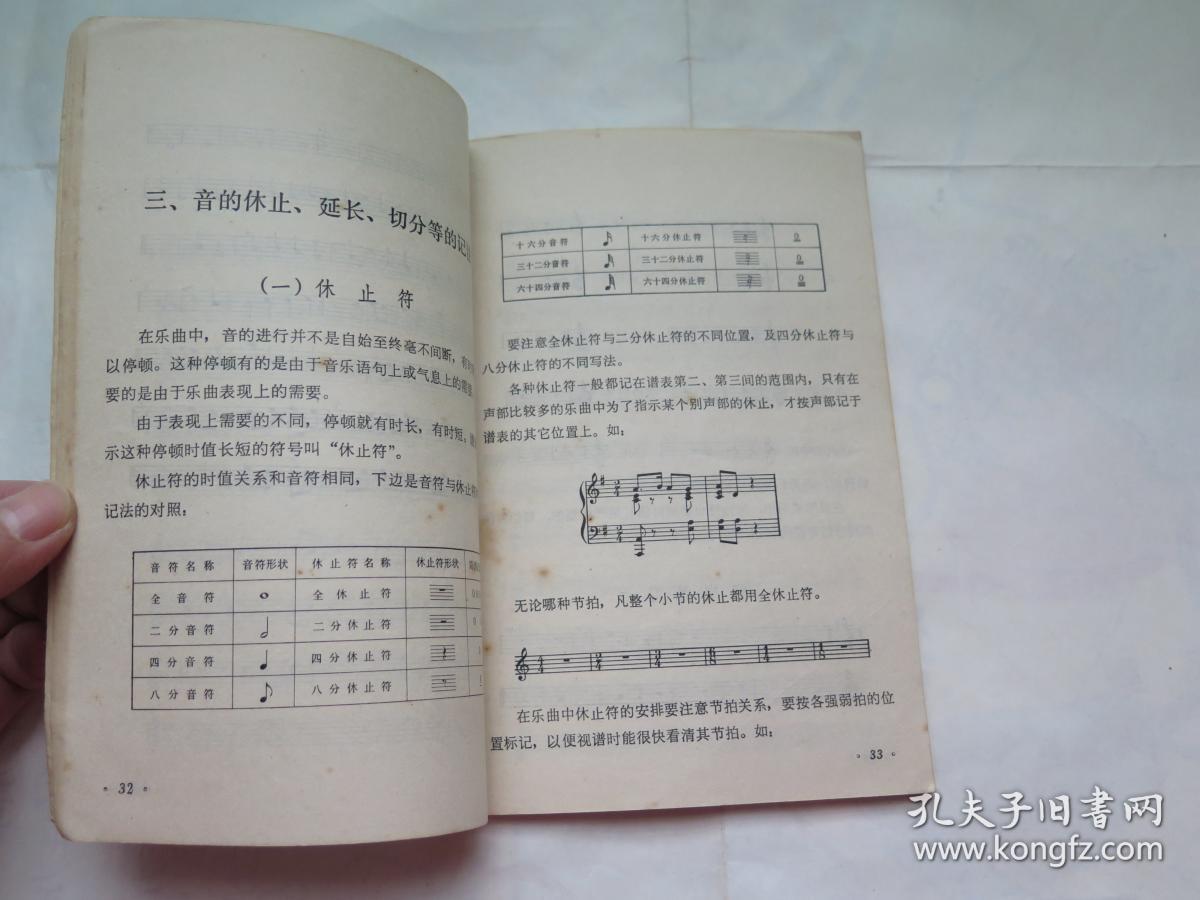 三、音的休止、延长、切分等的记
（一）休 止 符
在乐曲中，音的进行并不是自始至终毫不间断，
以停顿。这种停顿有的是由于音乐语句上或气息上的需
要的是由于乐曲表现上的需要。
由于表现上需要的不同，停顿就有时长，有时短。
示这种停顿时值长短的符号叫“休止符”。
休止符的时值关系和音符相同，下边是音符与休止符
记法的对照：
音 符 名 称 音符形状 休 止 符 名 称 休止符形状
全 音 符 全 休 止 符
二 分 音 符 二 分 休 止 符
四 分 音 符 四 分 休 止 符
八 分 音 符 八 分 休 止 符
· 32 ·
十六分音符 十六分休止符 0
三十二分音符 三十二分休止符 0
六十四分音符 六十四分休止符 0
要注意全休止符与二分休止符的不同位置，及四分休止符与
八分休止符的不同写法。
各种休止符一般都记在谱表第二、第三间的范围内，只有在
声部比较多的乐曲中为了指示某个别声部的休止，才按声部记于
谱表的其它位置上。如：
无论哪种节拍，凡整个小节的休止都用全休止符。
在乐曲中休止符的安排要注意节拍关系，要按各强弱拍的位
置标记，以便视谱时能很快看清其节拍。如：
· 33 ·
孔夫子旧书网
www.kongfz.com